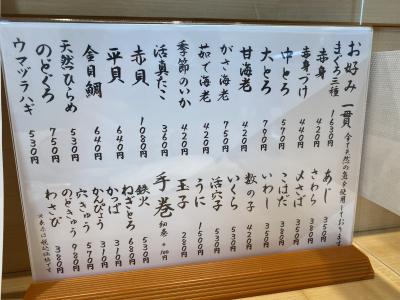 お好み 一貫 全て天然の魚を使用しております
まぐろ三種 1630円
赤身 420円
赤身づけ 440円
中とろ 570円
大とろ 790円
甘海老 420円
がさ海老 750円
茹で海老 420円
季節のいか 420円
活真だこ 360円
赤貝 1080円
平貝 640円
金目鯛 640円
天然ひらめ 530円
のどぐろ 750円
ウマヅラハギ 530円
あじ 350円
さわら 350円
〆さば 350円
こはだ 380円
いわし
数の子
いくら 530円
活穴子 530円
うに 1500円
玉子 280円
手巻 細巻 +100円
鉄火 530円
ねぎとろ 680円
かっぱ 310円
かんぴょう 310円
穴きゅう 570円
のどきゅう 980円
わさび 380円
※表示は税込価格です